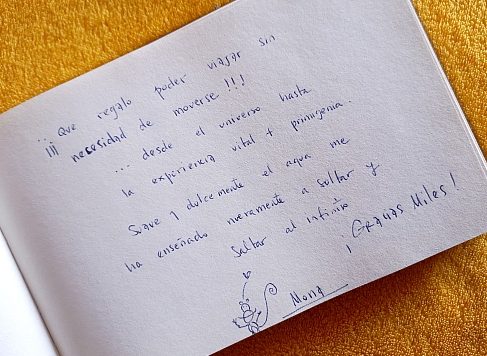 ... Que regalo poder viajar sin
¡¡¡ necesidad de moverse !!!
... desde el universo hasta
la experiencia vital + primigenia.
Suave y dulcemente el agua me
ha enseñado nuevamente a soltar y
saltar al infinito
¡Gracias Miles!
Mona